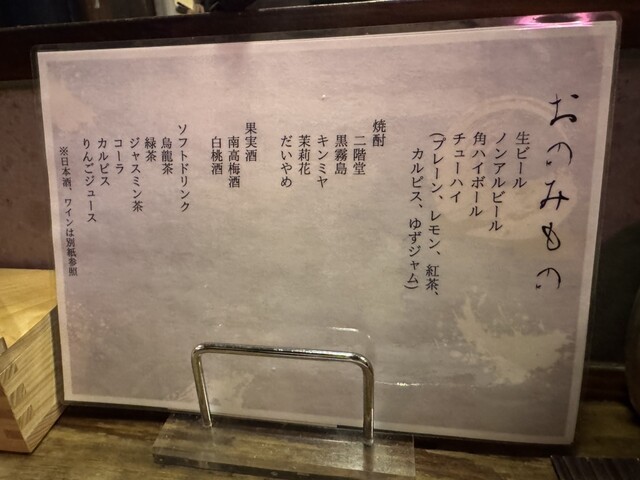 おのみもの
生ビール
ノンアルビール
角ハイボール
チューハイ
(プレーン、レモン、紅茶、
カルピス、ゆずジャム)
焼酎
二階堂
黒霧島
キンミヤ
茉莉花
だいやめ
果実酒
南高梅酒
白桃酒
ソフトドリンク
烏龍茶
緑茶
ジャスミン茶
コーラ
カルピス
りんごジュース
※日本酒、ワインは別紙参照